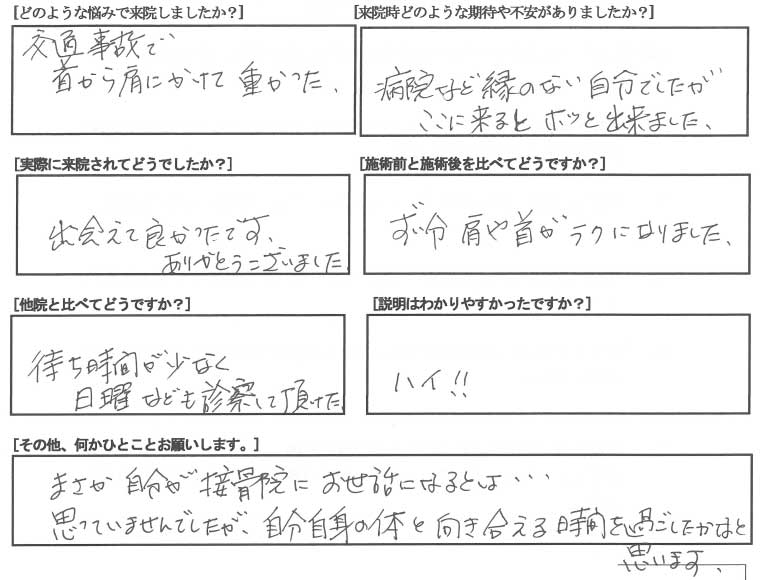 [どのような悩みで来院しましたか？]
交通事故で
首から肩にかけて重かった.
[来院時どのような期待や不安がありましたか？]
病院など縁のない自分でしたが
ここに来るとホッと出来ました、
[実際に来院されてどうでしたか？]
出会えて良かったです、
ありがとうございました
[施術前と施術後を比べてどうですか？]
ずい分 肩や首がラクになりました、
[他院と比べてどうですか？]
待ち時間が少なく
日曜なども診察して頂けた.
[説明はわかりやすかったですか？]
ハイ!!
[その他、何かひとことお願いします。]
まさか自分が接骨院にお世話になるとは・・・
思っていませんでしたが、自分自身の体と向き合える時間を過ごしたかなと
思います、